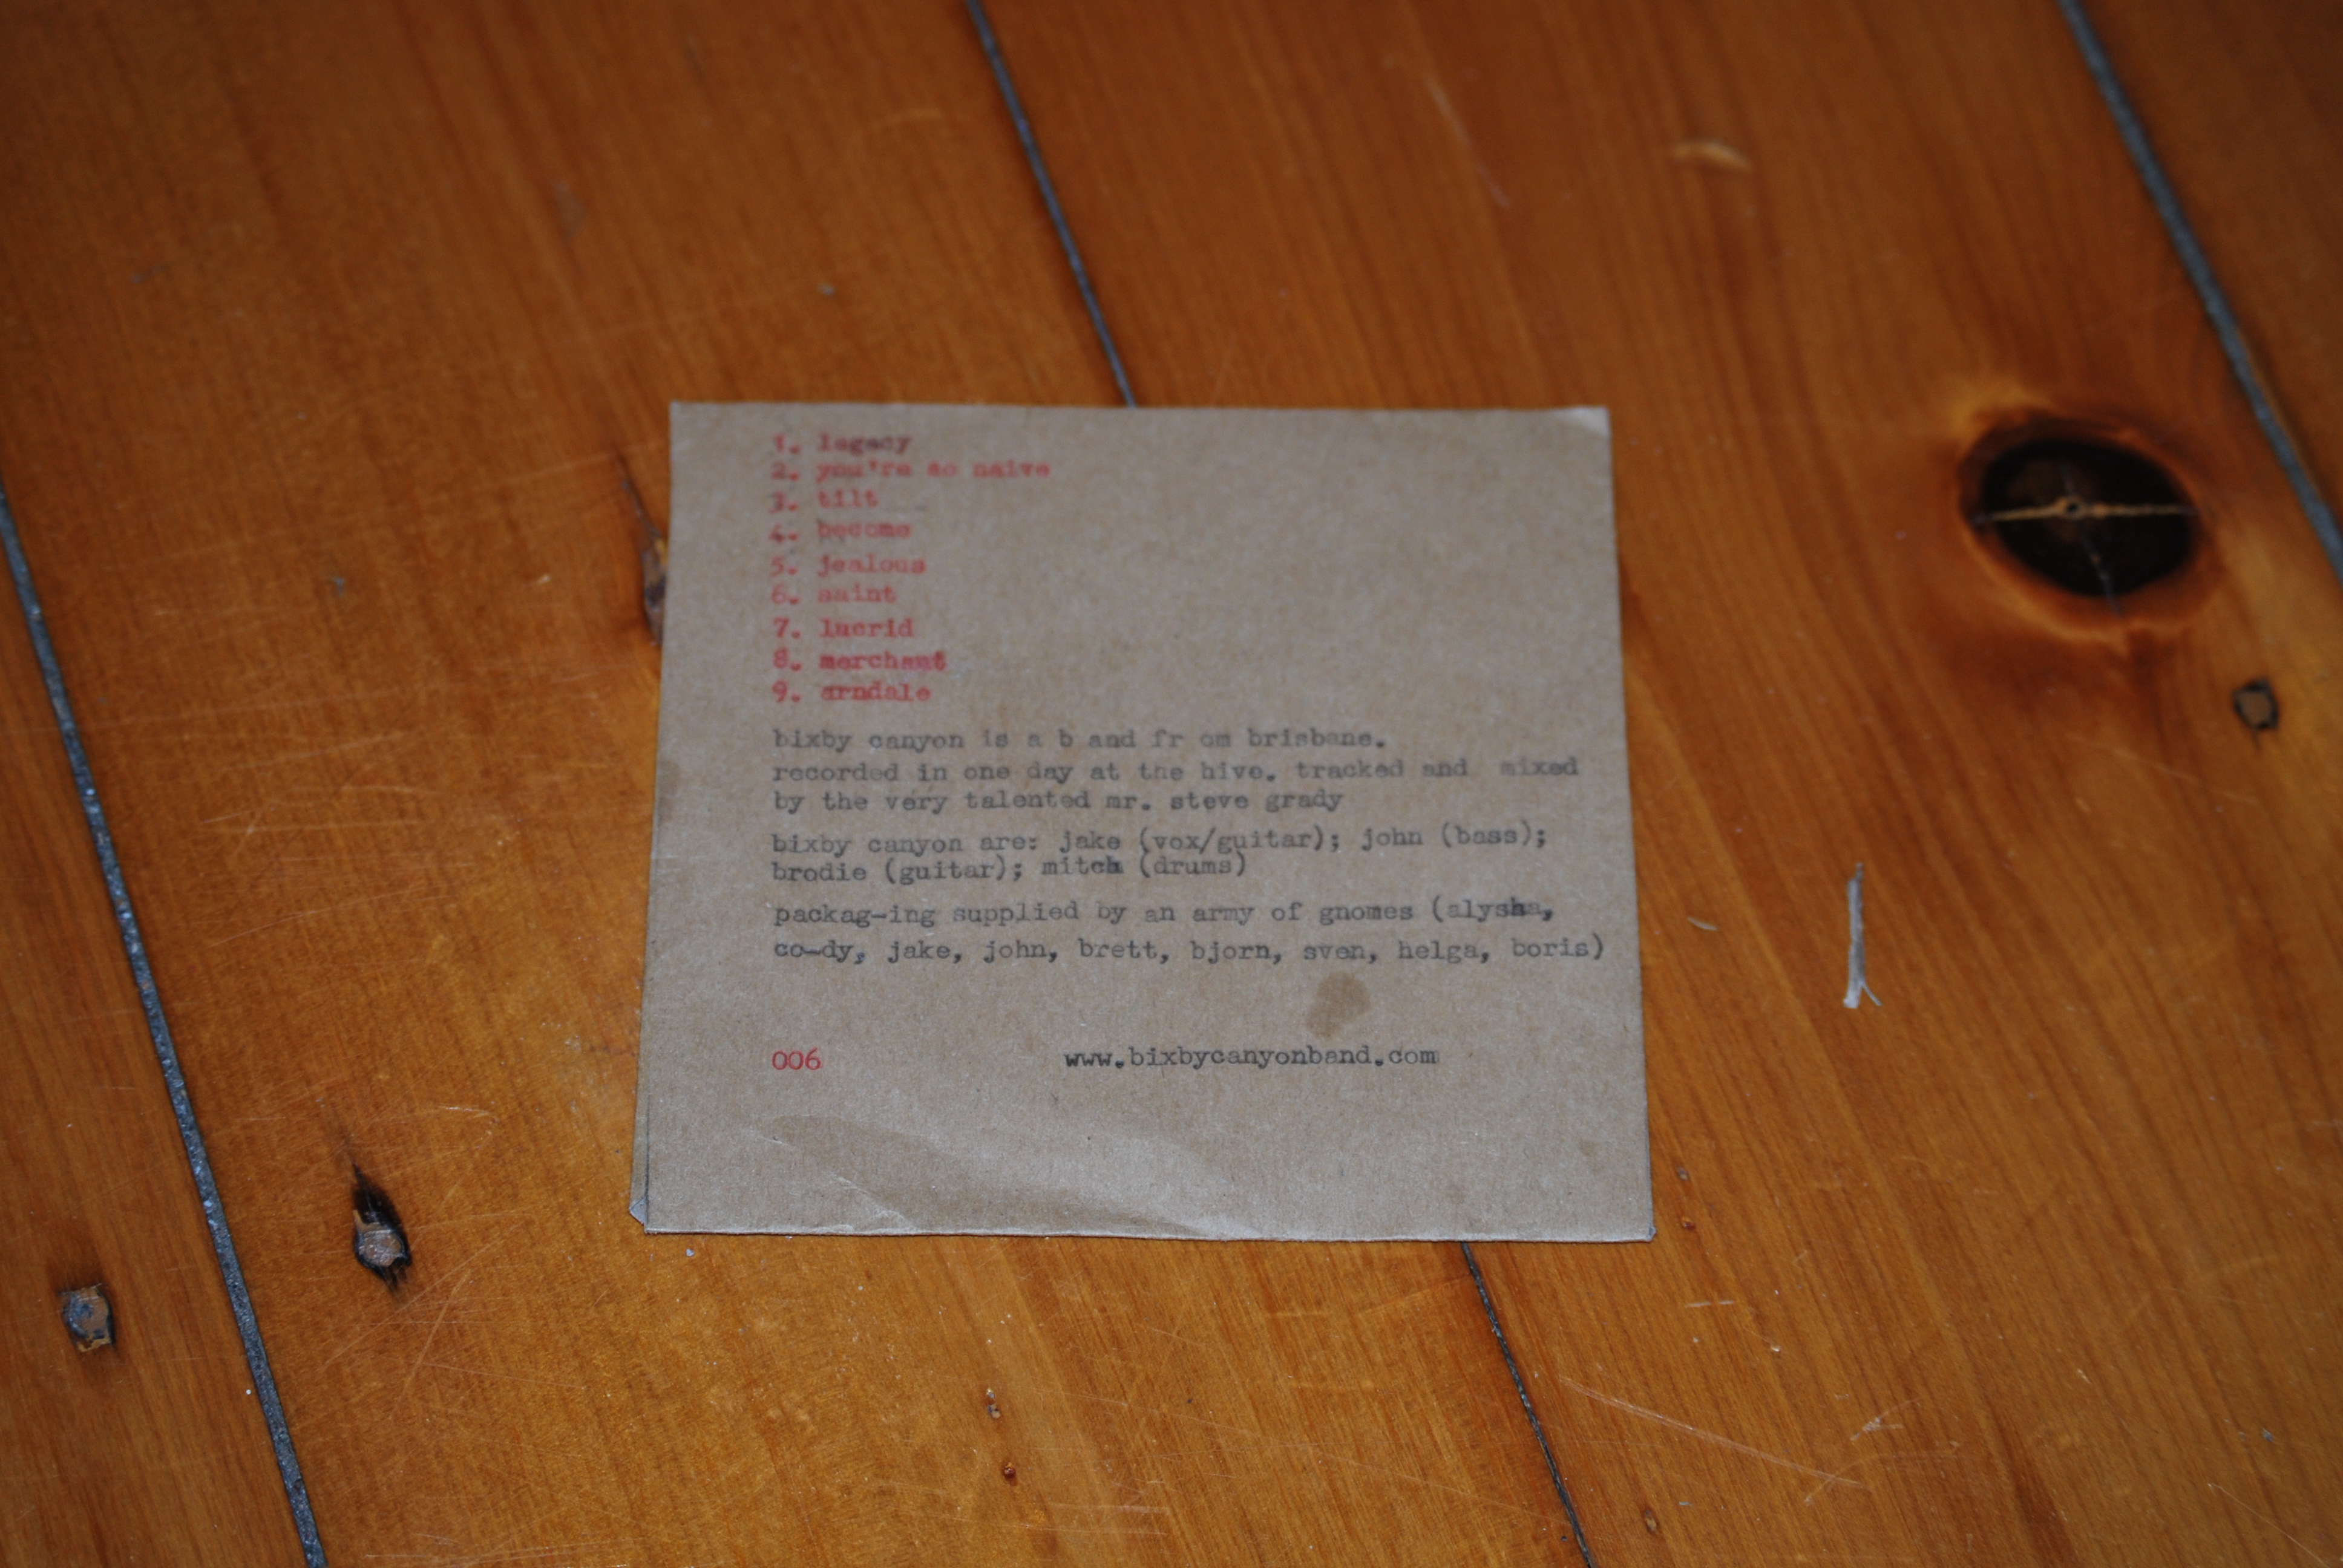 1. legacy
2. you're so naive
3. tilt
4. become
5. jealous
6. saint
7. lucrid
8. merchant
9. arndale
bixby canyon is a b and fr om brisbane.
recorded in one day at the hive. tracked and mixed
by the very talented mr. steve grady
bixby canyon are: jake (vox/guitar); john (bass);
brodie (guitar); mitch (drums)
packag-ing supplied by an army of gnomes (alysha,
co-dy, jake, john, brett, bjorn, sven, helga, boris)
006 www.bixbycanyonband.com